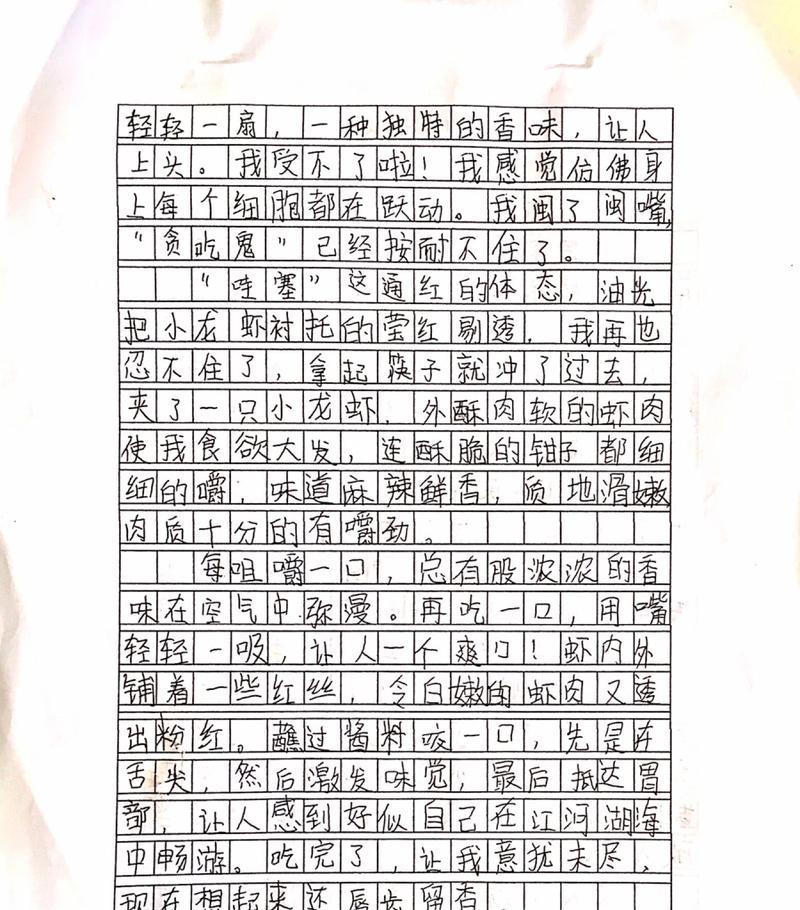 轻轻一扇，一种独特的香味，让人
上头。我受不了啦！我感觉仿佛身
上每个细胞都在跃动。我闽了闽嘴，
“贪吃鬼”已经按耐不住了。
“哇塞”这通红的体态，油光
把小龙虾衬托的莹红剔透．我再也
忍不住了，拿起筷子就冲了过去，
夹了一只小龙虾．外酥肉软的虾肉
使我食欲大发，连酥脆的钳子都细
细的嚼，味道麻辣鲜香，质地滑嫩
肉质十分的有嚼劲。
每咀嚼一口，总有股浓浓的香
味在空气中弥漫。再吃一口，用嘴
轻轻一吸，让人一个爽口！虾内外
铺着一些红丝，令白嫩的虾肉又透
出粉红。蘸过酱料咬一口，先是在
舌尖，然后激发味觉，最后抵达胃
部，让人感到好似自己在江河湖海
中畅游。吃完了，让我意犹未尽，
现在想起来还唇齿留香．